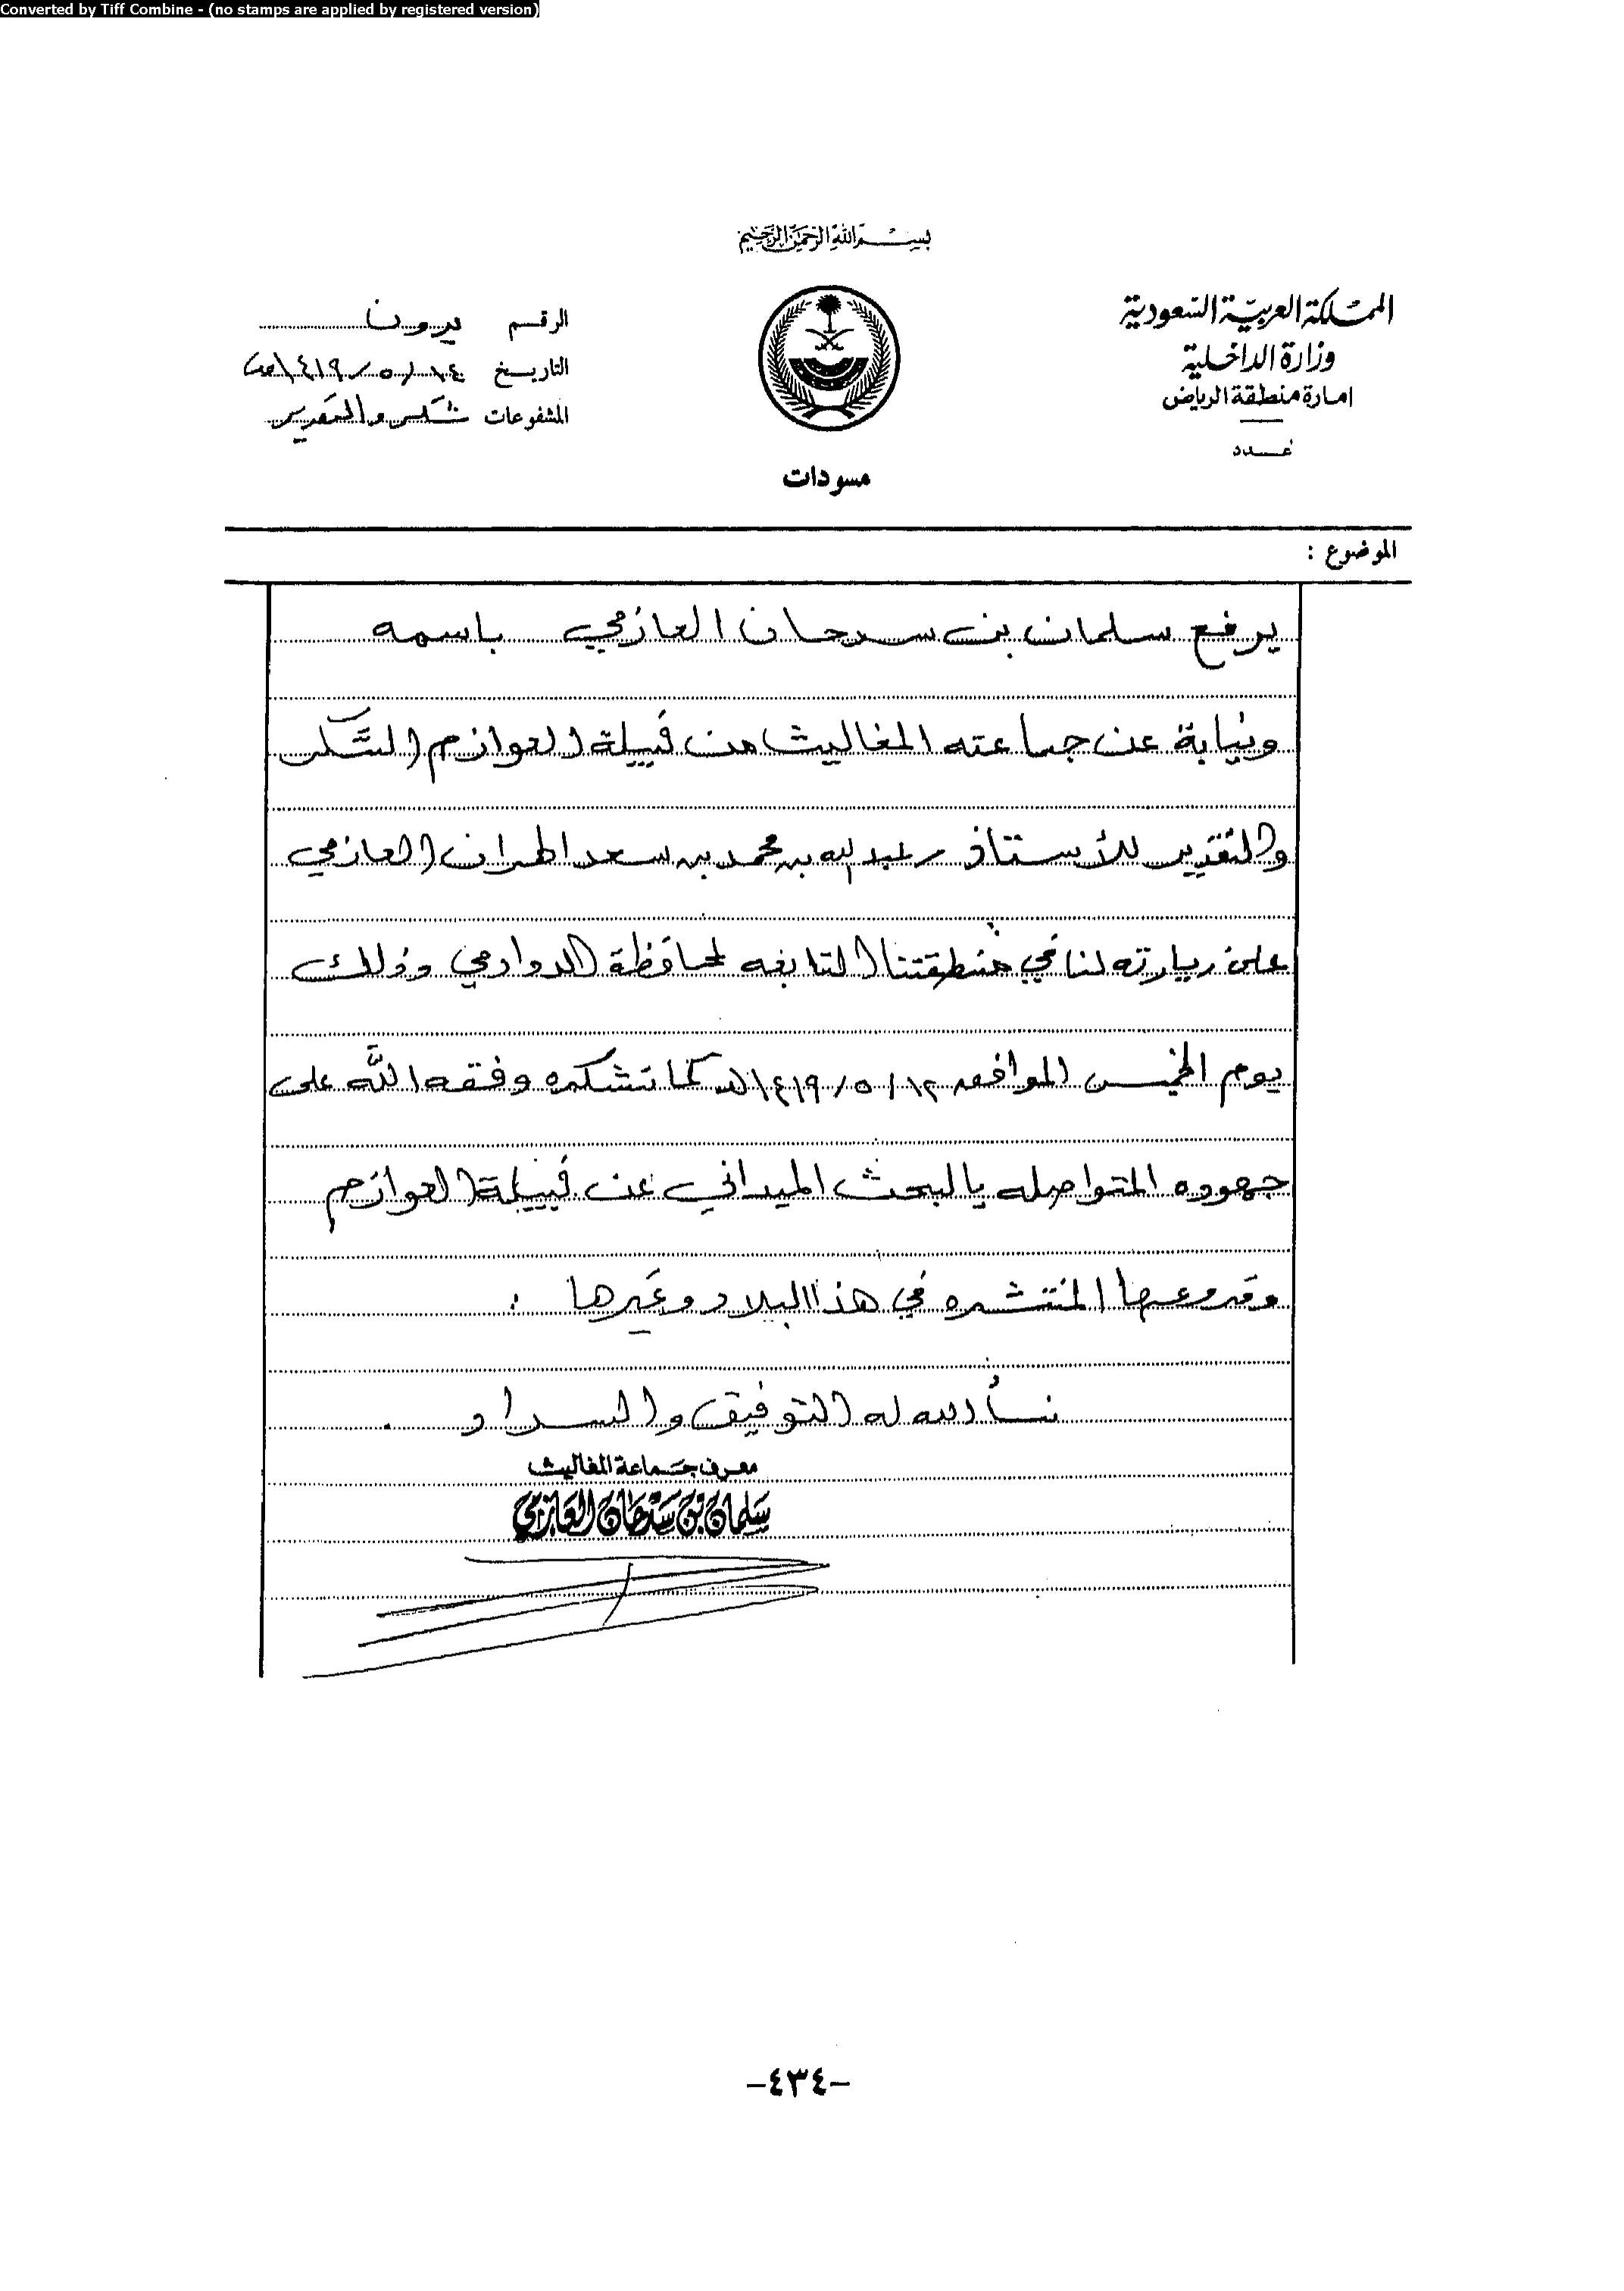 Converted by Tiff Combine - (no stamps are applied by registered version)
بسم الله الرحمن الرحيم
المملكة العربية السعودية
وزارة الداخلية
امارة منطقة الرياض
عدد
الرقم بدون
التاريخ ١٤ / ٥ / ١٤١٩هـ
المشفوعات شكر والتقدير
مسودات
الموضوع :
يرفع سلمان بن سرحان العازمي باسمه
ونيابة عن جماعته المغاليث من قبيلة العوازم الشكر
والتقدير للأستاذ / عبدالله بن محمد بن سعد العازمي
على زيارته لنا في منطقتنا التابعه لمحافظة الدوادمي وذلك
يوم الخميس الموافق ١٢ / ٥ / ١٤١٩هـ كما نشكره وفقه الله على
جهوده المتواصله بالبحث الميداني عن قبيلة العوازم
وفروعها المنتشره في هذا البلاد وغيرها :
نسأل الله له التوفيق والسداد .
معرف جماعة المغاليث
سلمان بن سرحان العازمي
-٤٣٤-